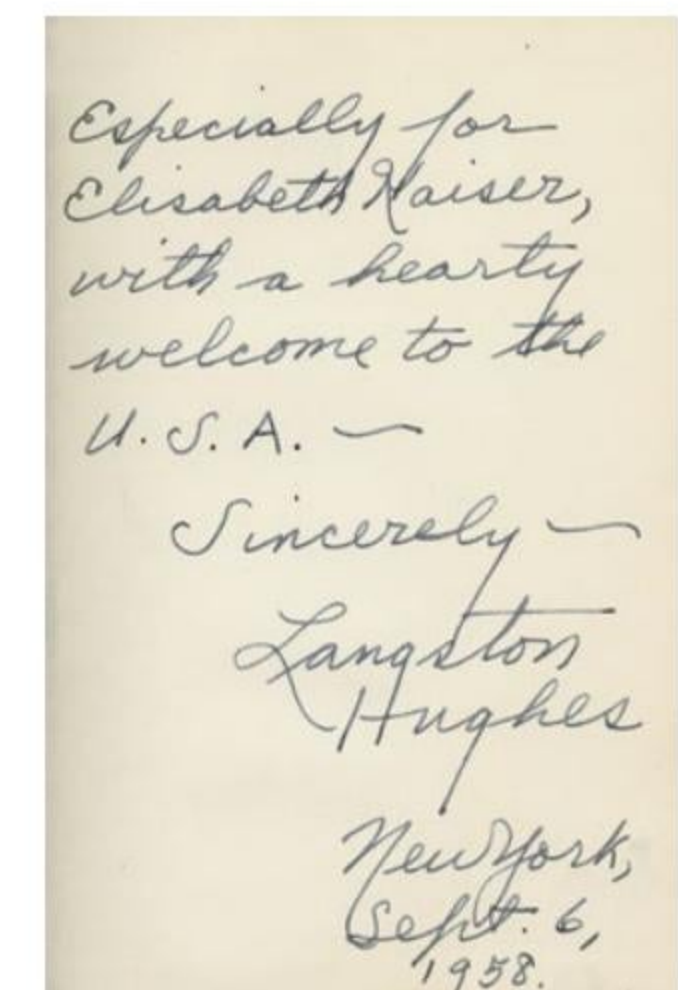 Especially for
Elisabeth Kaiser,
with a hearty
welcome to the
U.S.A. —
Sincerely —
Langston
Hughes
New York,
Sept. 6,
1958.